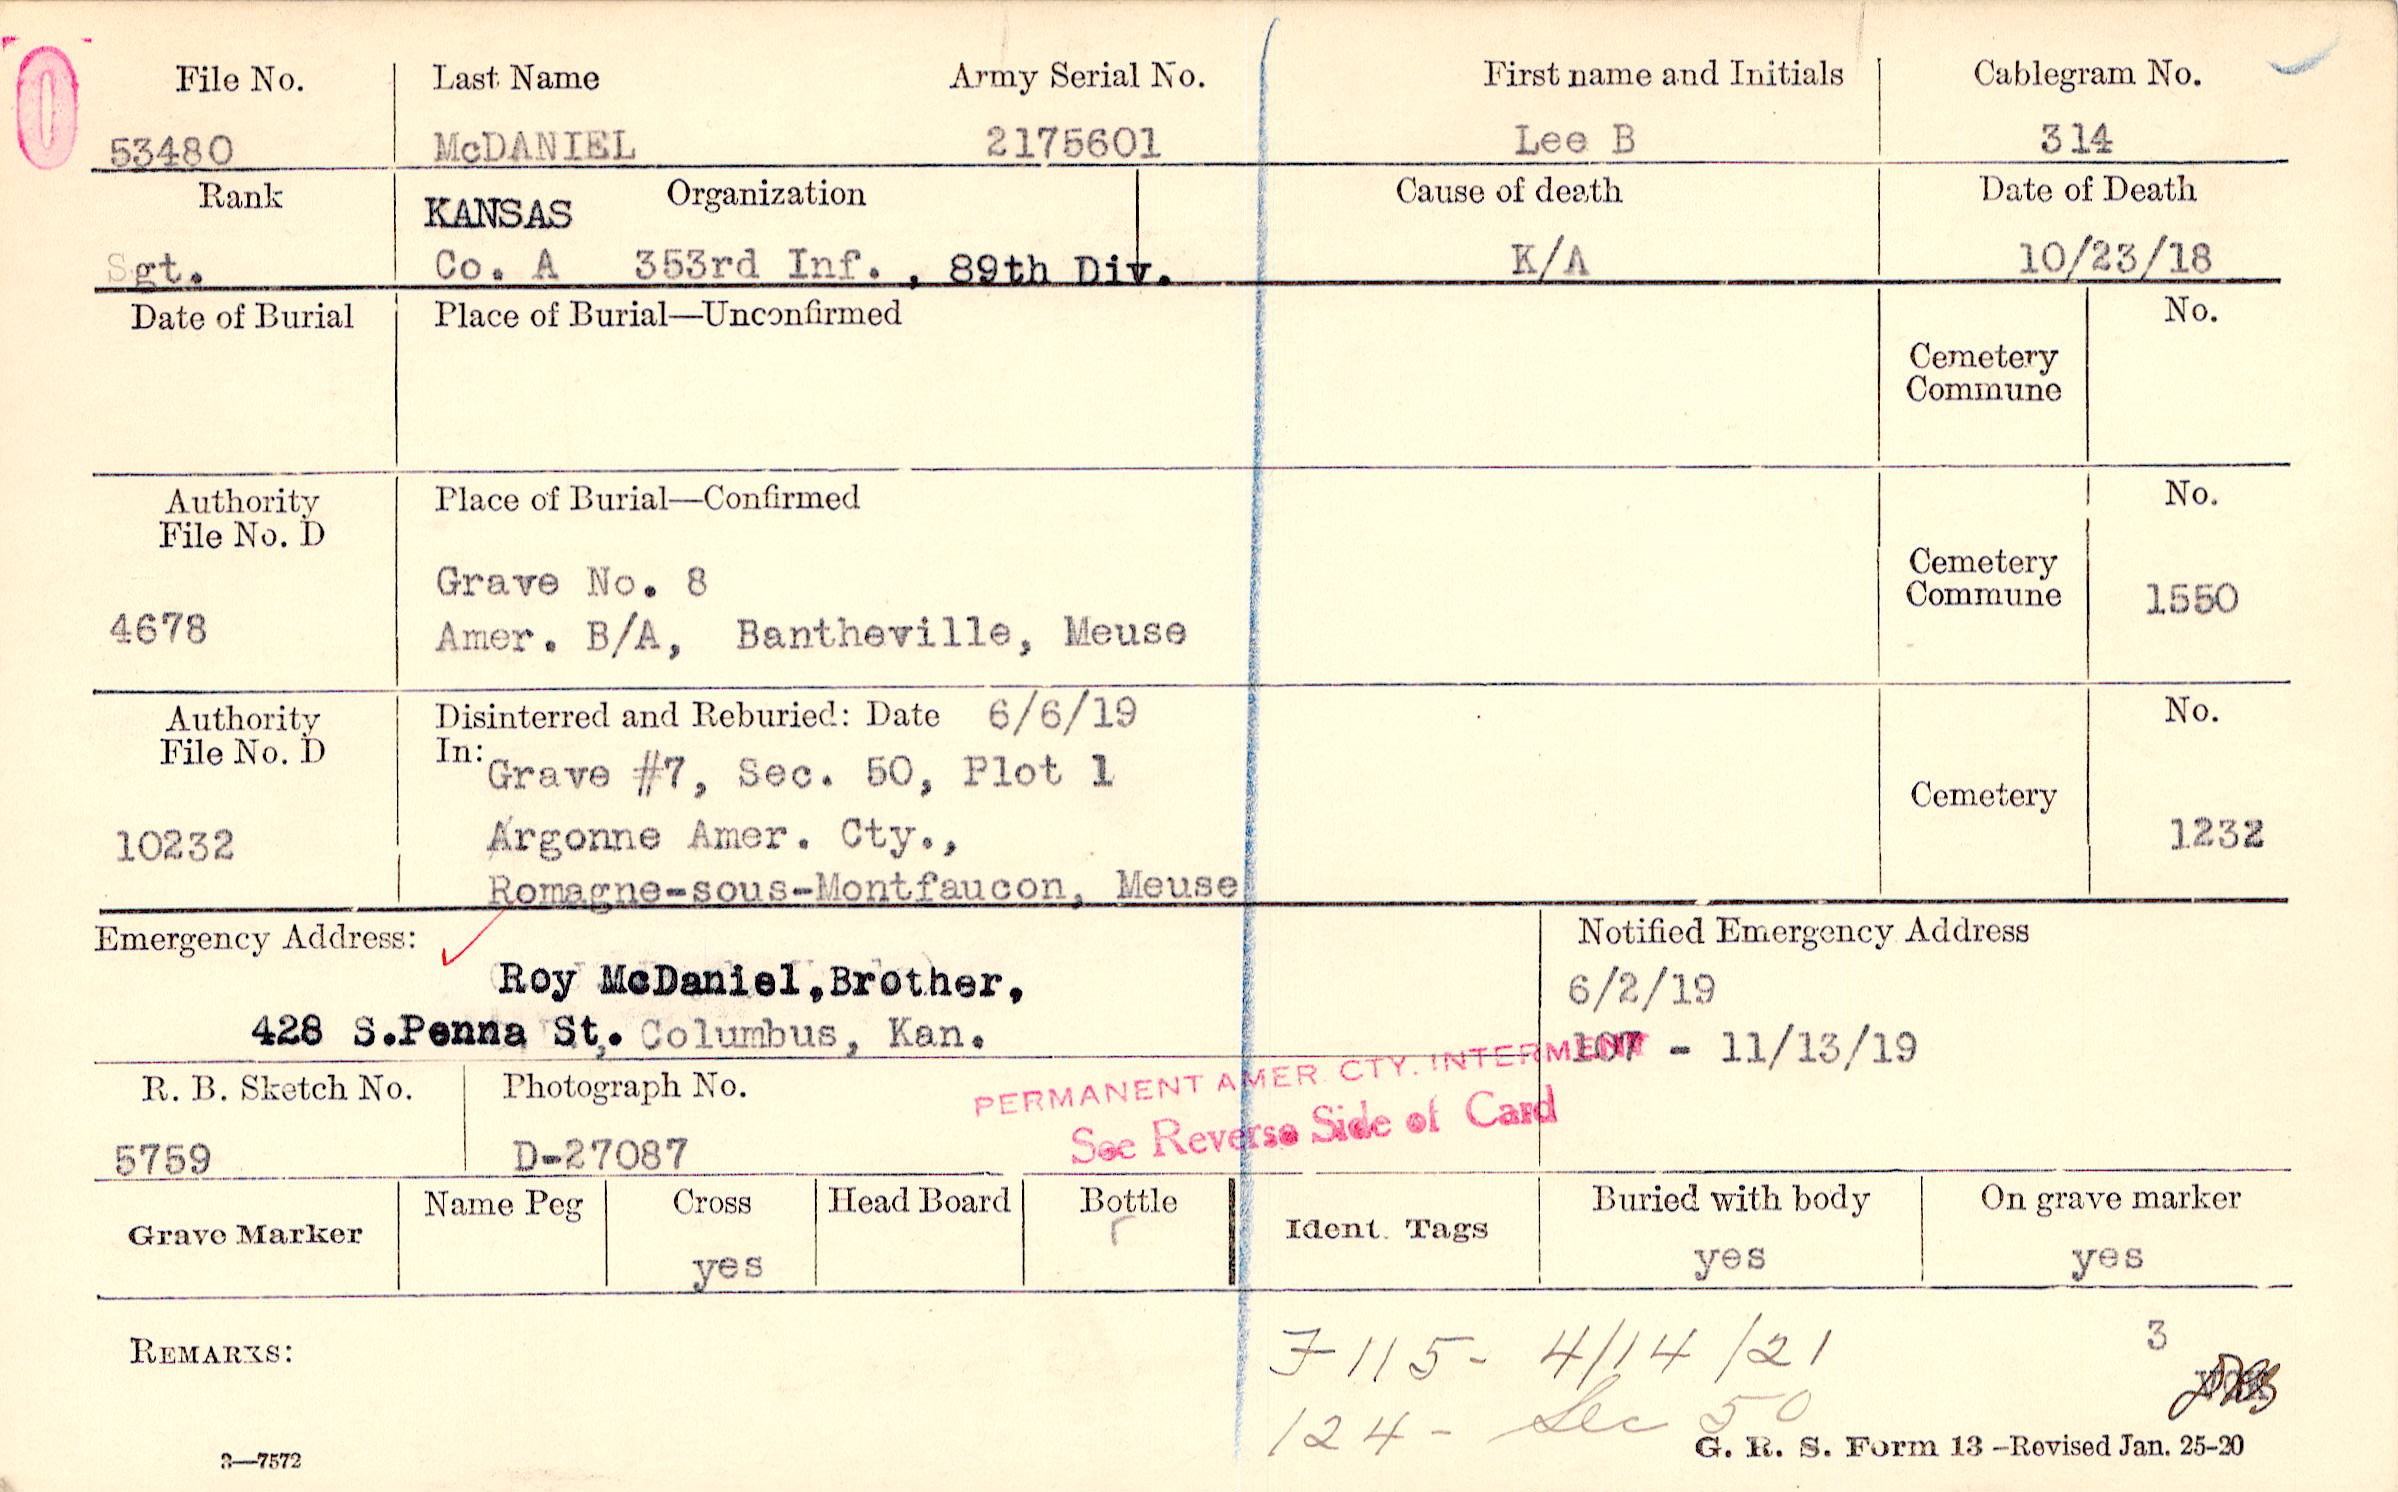 File No. Last Name Army Serial No. First name and Initials Cablegram No.
53480 McDANIEL 2175601 Lee B 314
Rank KANSAS Organization Cause of death Date of Death
Sgt. Co. A 353rd Inf. , 89th Div. K/A 10/23/18
Date of Burial Place of Burial—Unconfirmed No.
Cemetery
Commune
Authority Place of Burial—Confirmed No.
File No. D
Grave No. 8 Cemetery
Commune 1550
4678 Amer. B/A, Bantheville, Meuse
Authority Disinterred and Reburied: Date 6/6/19 No.
File No. D In: Grave #7, Sec. 50, Plot 1
Cemetery
10232 Argonne Amer. Cty., 1232
Romagne-sous-Montfaucon, Meuse
Emergency Address: Notified Emergency Address
Roy McDaniel,Brother, 6/2/19
428 S.Penna St,. Columbus, Kan. 107 - 11/13/19
PERMANENT AMER. CTY. INTERMENT
See Reverse Side of Card
R. B. Sketch No. Photograph No.
5759 D-27087
Grave Marker Name Peg Cross Head Board Bottle Ident. Tags Buried with body On grave marker
yes yes yes
REMARKS: F115- 4/14/21 3
124- Sec 50
3—7572 G. R. S. Form 13 -Revised Jan. 25-20